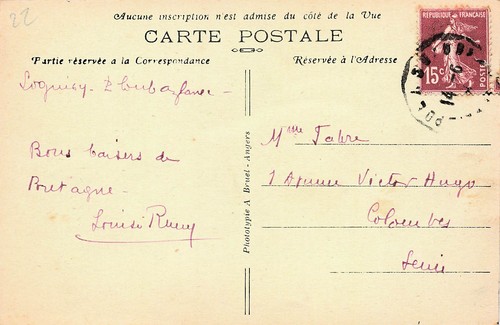 22
Aucune inscription n'est admise du côté de la Vue
CARTE POSTALE
Partie réservée à la Correspondance
Réservée à l'Adresse
REPUBLIQUE FRANÇAISE
15c
14-6
Bons baisers de
Bretagne -
Phototypie A Bruel - Angers
Mme Fabre
1 Avenue Victor Hugo
Colombes
Seine